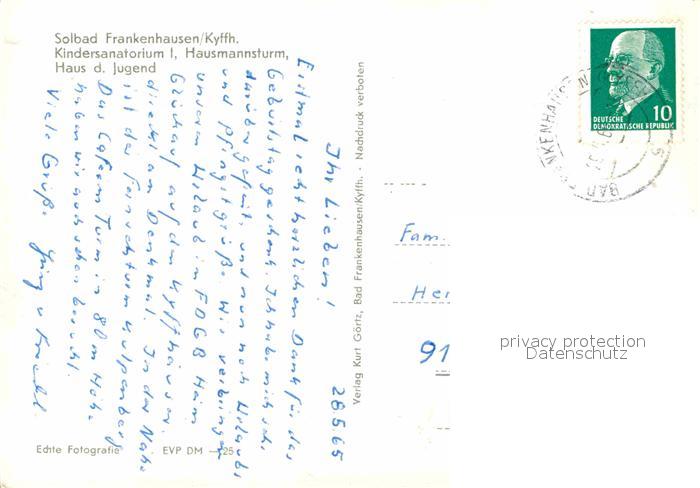 Solbad Frankenhausen/Kyffh.
Kindersanatorium I, Hausmannsturm,
Haus d. Jugend
Ihr Lieben! 28565
Erstmal recht herzlichen Dank für das
Geburtstagsgeschenk. Ich habe mich sehr
darüber gefreut, und nun noch Urlaubs
und Pfingstgrüße. Wir verbringen
unseren Urlaub im FDGB Heim
Glückauf auf dem Kyffhäuser,
direkt am Denkmal. In der Nähe
ist der Fernsehturm Kulpenberg
Das Cafe am Turm in 80 m Höhe
haben wir auch schon besucht.
Viele Grüße
Echte Fotografie
EVP DM —.25
Verlag Kurt Görtz, Bad Frankenhausen/Kyffh. · Nachdruck verboten
DEUTSCHE
DEMOKRATISCHE REPUBLIK
10
BAD FRANKENHAUSEN
Fam.
Hei
91
privacy protection
Datenschutz